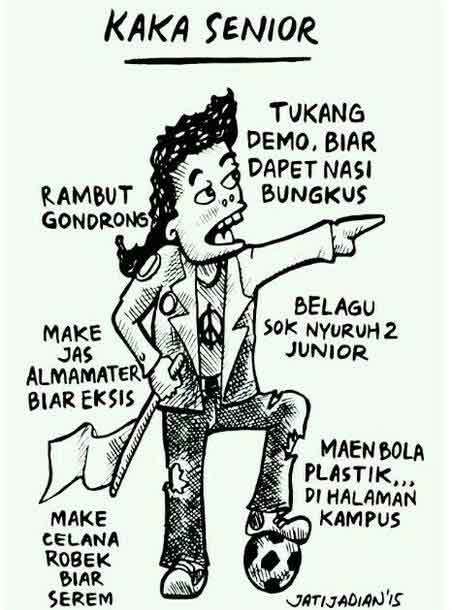 KAKA SENIOR
TUKANG
DEMO, BIAR
DAPET NASI
BUNGKUS
RAMBUT
GONDRONG
BELAGU
SOK NYURUH2
JUNIOR
MAKE
JAS
ALMAMATER
BIAR EKSIS
MAEN BOLA
PLASTIK,,,
DI HALAMAN
KAMPUS
MAKE
CELANA
ROBEK
BIAR
SEREM
JATIJADIAN'15